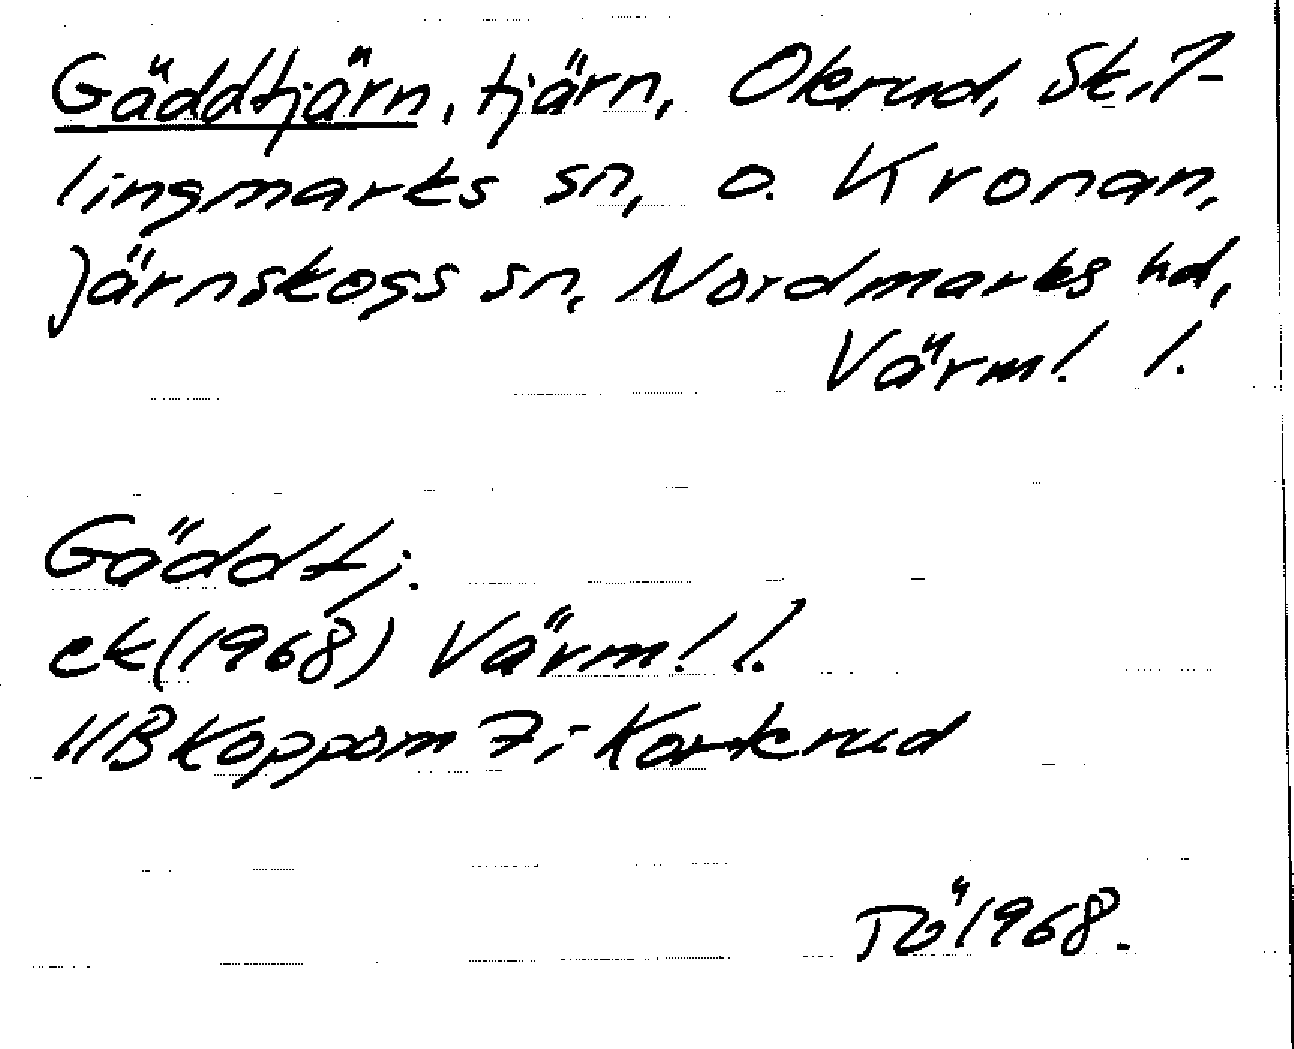 Gäddtjärn, tjärn, Okrud, Skil-
lingmarks sn, o. Kronan,
Järnskogs sn, Nordmarks hd,
Värml. l.
Gäddtj.
ek(1968) Värml. l.
11B Koppom 7i Karkrud
TÖ 1968.